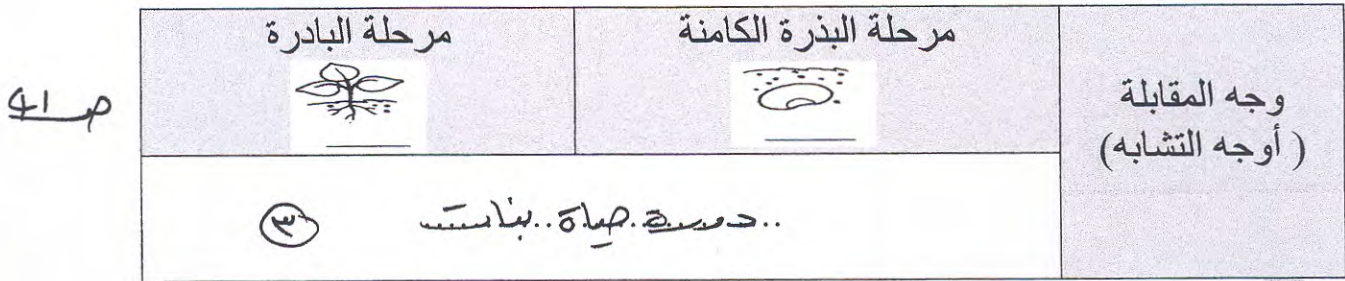 وجه المقابلة
(أوجه التشابه)
مرحلة البذرة الكامنة
مرحلة البادرة
..دورة..حياة..نبات......
٣
ص ٤١